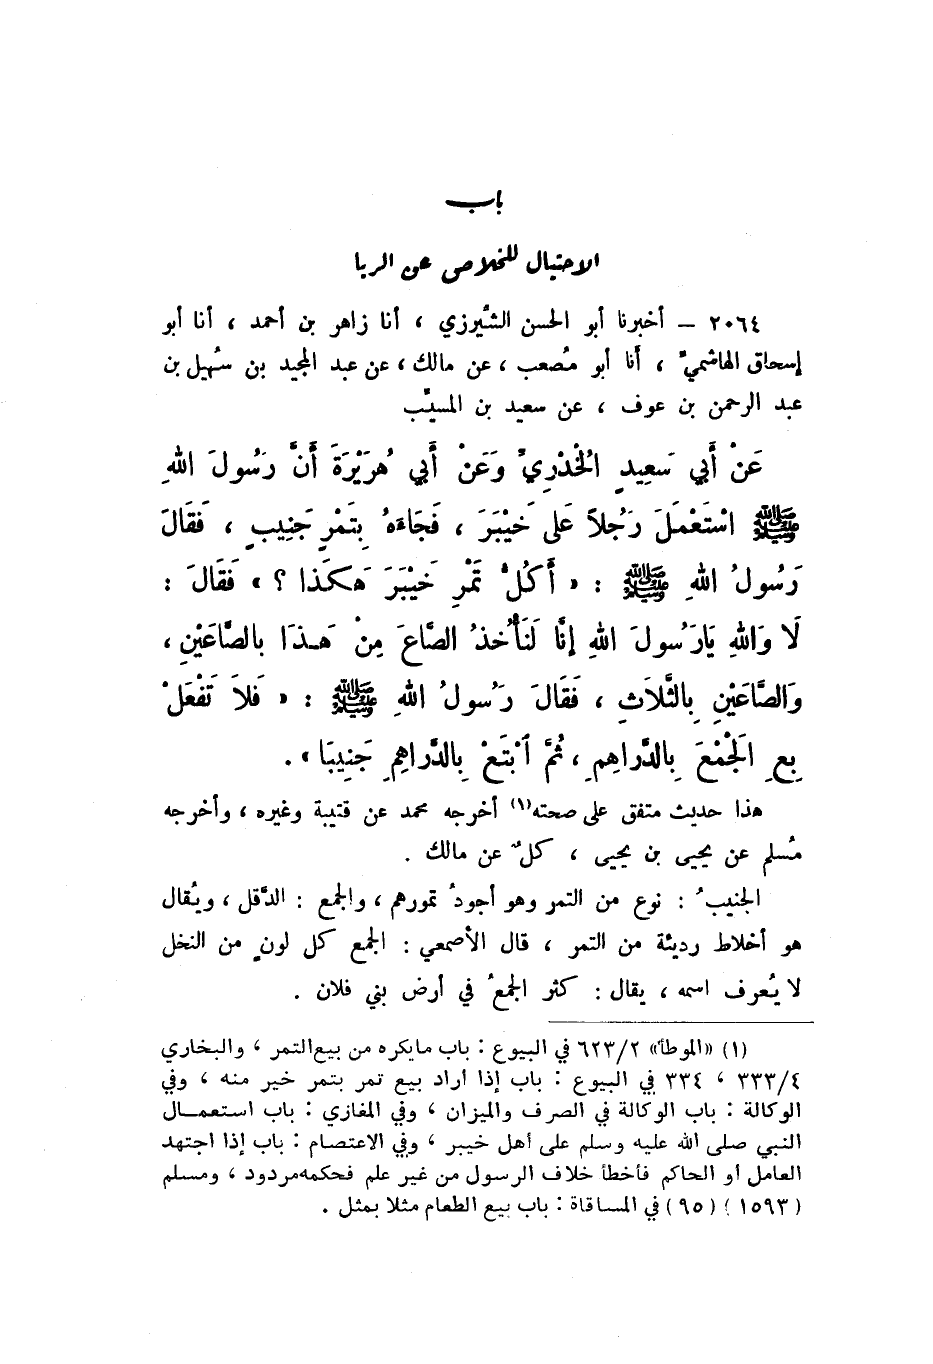 باب
الاحتيال للخلاص عن الربا
٢٠٦٤ – أخبرنا أبو الحسن الشيرزي ، أنا زاهر بن أحمد ، أنا أبو
إسحاق الهاشميّ ، أنا أبو مُصعب ، عن مالك ، عن عبد المجيد بن سُهيل بن
عبد الرحمن بن عوف ، عن سعيد بن المسيّب
عَنْ أَبِي سَعِيدٍ الْخُدْرِيِّ وَعَنْ أَبِي هُرَيْرَةَ أَنَّ رَسُولَ اللهِ
ﷺ اسْتَعْمَلَ رَجُلاً عَلَى خَيْبَرَ ، فَجَاءَهُ بِتَمْرٍ جَنِيبٍ ، فَقَالَ
رَسُولُ اللهِ ﷺ : « أَكُلُّ تَمْرِ خَيْبَرَ هَكَذا ؟ » فَقَالَ :
لَا وَاللهِ يَارَسُولَ اللهِ إِنَّا لَنَأْخُذُ الصَّاعَ مِنْ هَـذَا بِالصَّاعَيْنِ ،
وَالصَّاعَيْنِ بِالثَّلَاثِ ، فَقَالَ رَسُولُ اللهِ ﷺ : « فَلاَ تَفْعَلْ
بِعِ الْجَمْعَ بِالدَّرَاهِمِ ، ثُمَّ ابْتَعْ بِالدَّرَاهِمِ جَنِيبَا » .
هذا حديث متفق على صحته (١) أخرجه محمد عن قتيبة وغيره ، وأخرجه
مُسلم عن يحيى بن يحيى ، كلٌ عن مالك .
الجنيبُ : نوع من التمر وهو أجودُ تمورهم ، والجمع : الدَّقل ، ويُقال
هو أخلاط رديئة من التمر ، قال الأصمعي : الجمع كل لونٍ من النخل
لا يُعرف اسمه ، يقال : كثر الجمعُ في أرض بني فلان .
(١) «الموطأ» ٦٢٣/٢ في البيوع : باب مايكره من بيع التمر ، والبخاري
٣٣٣/٤ ، ٣٣٤ في البيوع : باب إذا أراد بيع تمر بتمر خير منه ، وفي
الوكالة : باب الوكالة في الصرف والميزان ، وفي المغازي : باب استعمـال
النبي صلى الله عليه وسلم على أهل خيبر ، وفي الاعتصام : باب إذا اجتهد
العامل أو الحاكم فأخطأ خلاف الرسول من غير علم فحكمه مردود ، ومسلم
(١٥٩٣) (٩٥) في المساقاة : باب بيع الطعام مثلا بمثل .